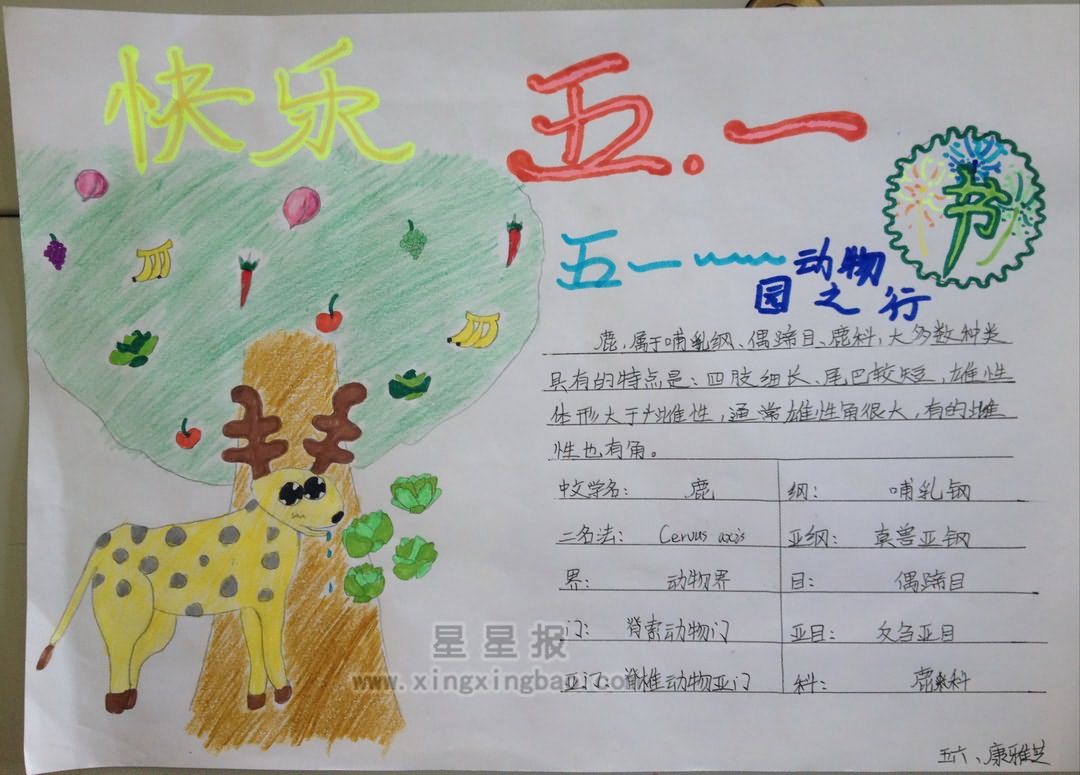 快乐 五.一
节
五一~~~动物
园之行
鹿,属于哺乳纲、偶蹄目、鹿科,大多数种类
具有的特点是:四肢细长、尾巴较短,雄性
体形大于雌性,通常雄性角很大,有的雌
性也有角。
中文学名: 鹿 纲: 哺乳钢
二名法: Cervus axis 亚纲: 真兽亚钢
界: 动物界 目: 偶蹄目
门: 脊索动物门 亚目:
亚门: 脊椎动物亚门 科: 鹿科
星星报
www.xingxingbao.com
五六、康雅芝